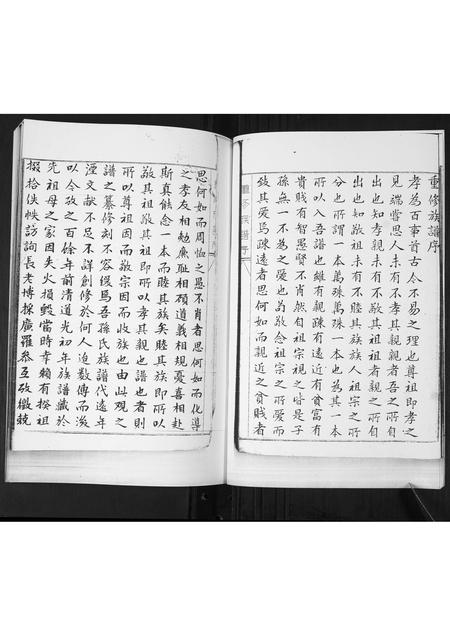 重修族譜序
孝為百事首古今不易之理也尊祖即孝之
見端嘗思人未有不孝其親親者吾之所自
出也知孝親未有不敬其祖祖者親之所自
出也知敬祖未有不睦其族族人祖宗之所
分也所謂一本萬殊萬殊一本也為其一本
所以入吾譜也雖有親疎有遠近有貧富有
貴賤有智愚賢不肖然自祖宗視之皆是子
孫無一不為之愛也苟敬念祖宗之所愛而
致其愛焉疎遠者思何如而親近之貧賤者
重修族譜序
思何如而周恤之愚不肖者思何如而化導
之孝友相勉廉耻相頋道義相規憂喜相赴
斯真能念一本而睦其族矣睦其族即所以
敬其祖敬其祖即所以孝其親也譜也者則
所以尊祖因而敬宗因而收族也由此观之
譜之纂修刻不容缓焉吾孫氏族譜代遠年
湮文献不足不詳創修於何人迨数傳而後
以今攷之百餘年前清道光初年族譜藏於
先祖母之家因失火損毀當時幸賴有揆祖
掇拾佚帙訪詢長老博採廣羅參互攷徵兢